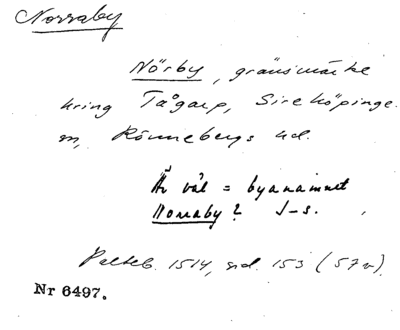 Norraby
Nörby, gränsmärke
kring Tågarp, Sireköpinge
sn, Rönnebergs hd.
Är väl = byanamnet
Norraby? J-s.
Palteb. 1514, sid. 153 (57v).
Nr 6497.